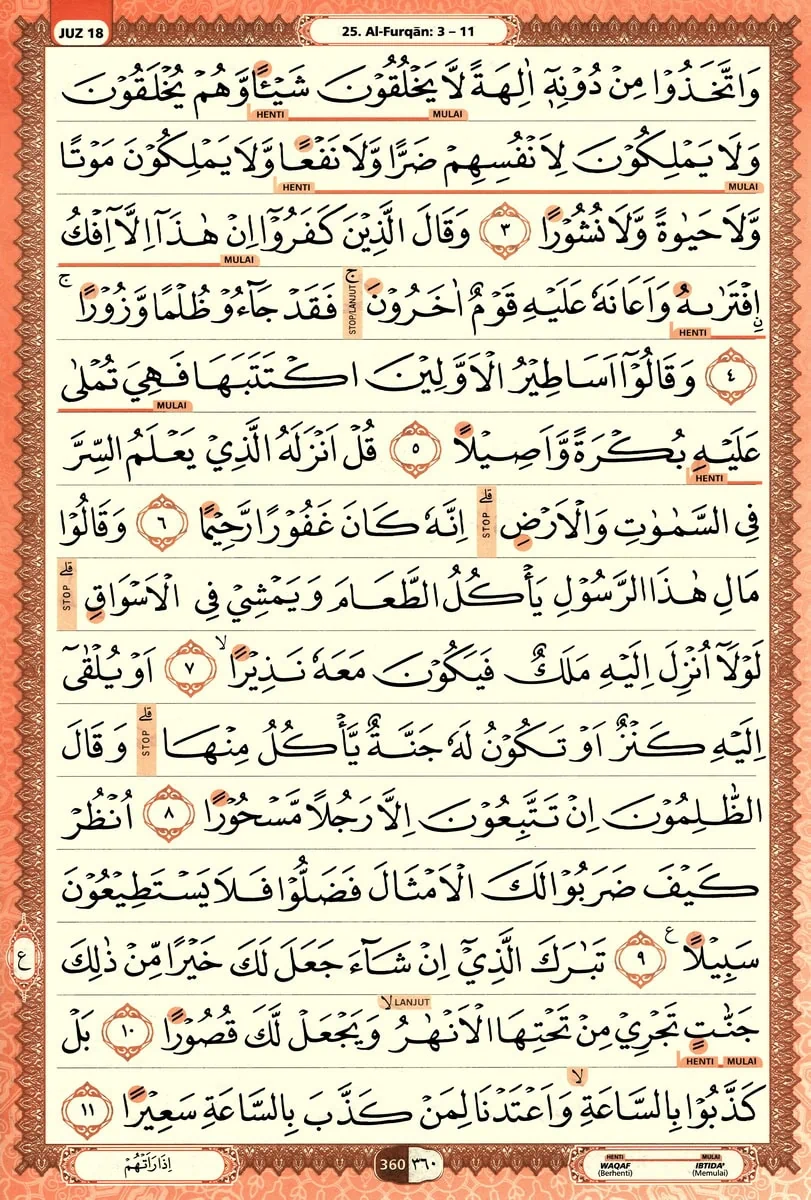 JUZ 18
25. Al-Furqān: 3 – 11
وَاتَّخَذُوْا مِنْ دُوْنِهٖٓ اٰلِهَةً لَّا يَخْلُقُوْنَ شَيْـًٔا وَّهُمْ يُخْلَقُوْنَ
HENTI MULAI
وَلَا يَمْلِكُوْنَ لِاَنْفُسِهِمْ ضَرًّا وَّلَا نَفْعًا وَّلَا يَمْلِكُوْنَ مَوْتًا
HENTI MULAI
وَّلَا حَيٰوةً وَّلَا نُشُوْرًا ٣ وَقَالَ الَّذِيْنَ كَفَرُوْٓا اِنْ هٰذَآ اِلَّآ اِفْكُ
MULAI
ࣙافْتَرٰىهُ وَاَعَانَهٗ عَلَيْهِ قَوْمٌ اٰخَرُوْنَ ۚ فَقَدْ جَاۤءُوْ ظُلْمًا وَّزُوْرًا ۚ
HENTI STOP/LANJUT
٤ وَقَالُوْٓا اَسَاطِيْرُ الْاَوَّلِيْنَ اكْتَتَبَهَا فَهِيَ تُمْلٰى
MULAI
عَلَيْهِ بُكْرَةً وَّاَصِيْلًا ٥ قُلْ اَنْزَلَهُ الَّذِيْ يَعْلَمُ السِّرَّ
HENTI
فِى السَّمٰوٰتِ وَالْاَرْضِ ۗ STOP اِنَّهٗ كَانَ غَفُوْرًا رَّحِيْمًا ٦ وَقَالُوْا
مَالِ هٰذَا الرَّسُوْلِ يَأْكُلُ الطَّعَامَ وَيَمْشِيْ فِى الْاَسْوَاقِ ۗ STOP
لَوْلَآ اُنْزِلَ اِلَيْهِ مَلَكٌ فَيَكُوْنَ مَعَهٗ نَذِيْرًا ۙ ٧ اَوْ يُلْقٰٓى
اِلَيْهِ كَنْزٌ اَوْ تَكُوْنُ لَهٗ جَنَّةٌ يَّأْكُلُ مِنْهَا ۗ STOP وَقَالَ
الظّٰلِمُوْنَ اِنْ تَتَّبِعُوْنَ اِلَّا رَجُلًا مَّسْحُوْرًا ٨ اُنْظُرْ
كَيْفَ ضَرَبُوْا لَكَ الْاَمْثَالَ فَضَلُّوْا فَلَا يَسْتَطِيْعُوْنَ
سَبِيْلًا ࣖ ٩ تَبٰرَكَ الَّذِيْٓ اِنْ شَاۤءَ جَعَلَ لَكَ خَيْرًا مِّنْ ذٰلِكَ
ع
LANJUT
جَنّٰتٍ تَجْرِيْ مِنْ تَحْتِهَا الْاَنْهٰرُ ۙ وَيَجْعَلْ لَّكَ قُصُوْرًا ١٠ بَلْ
HENTI MULAI
كَذَّبُوْا بِالسَّاعَةِ ۙ وَاَعْتَدْنَا لِمَنْ كَذَّبَ بِالسَّاعَةِ سَعِيْرًا ١١
اِذَا رَاَتْهُمْ
360 ٣٦٠
HENTI MULAI
WAQAF IBTIDA'
(Berhenti) (Memulai)